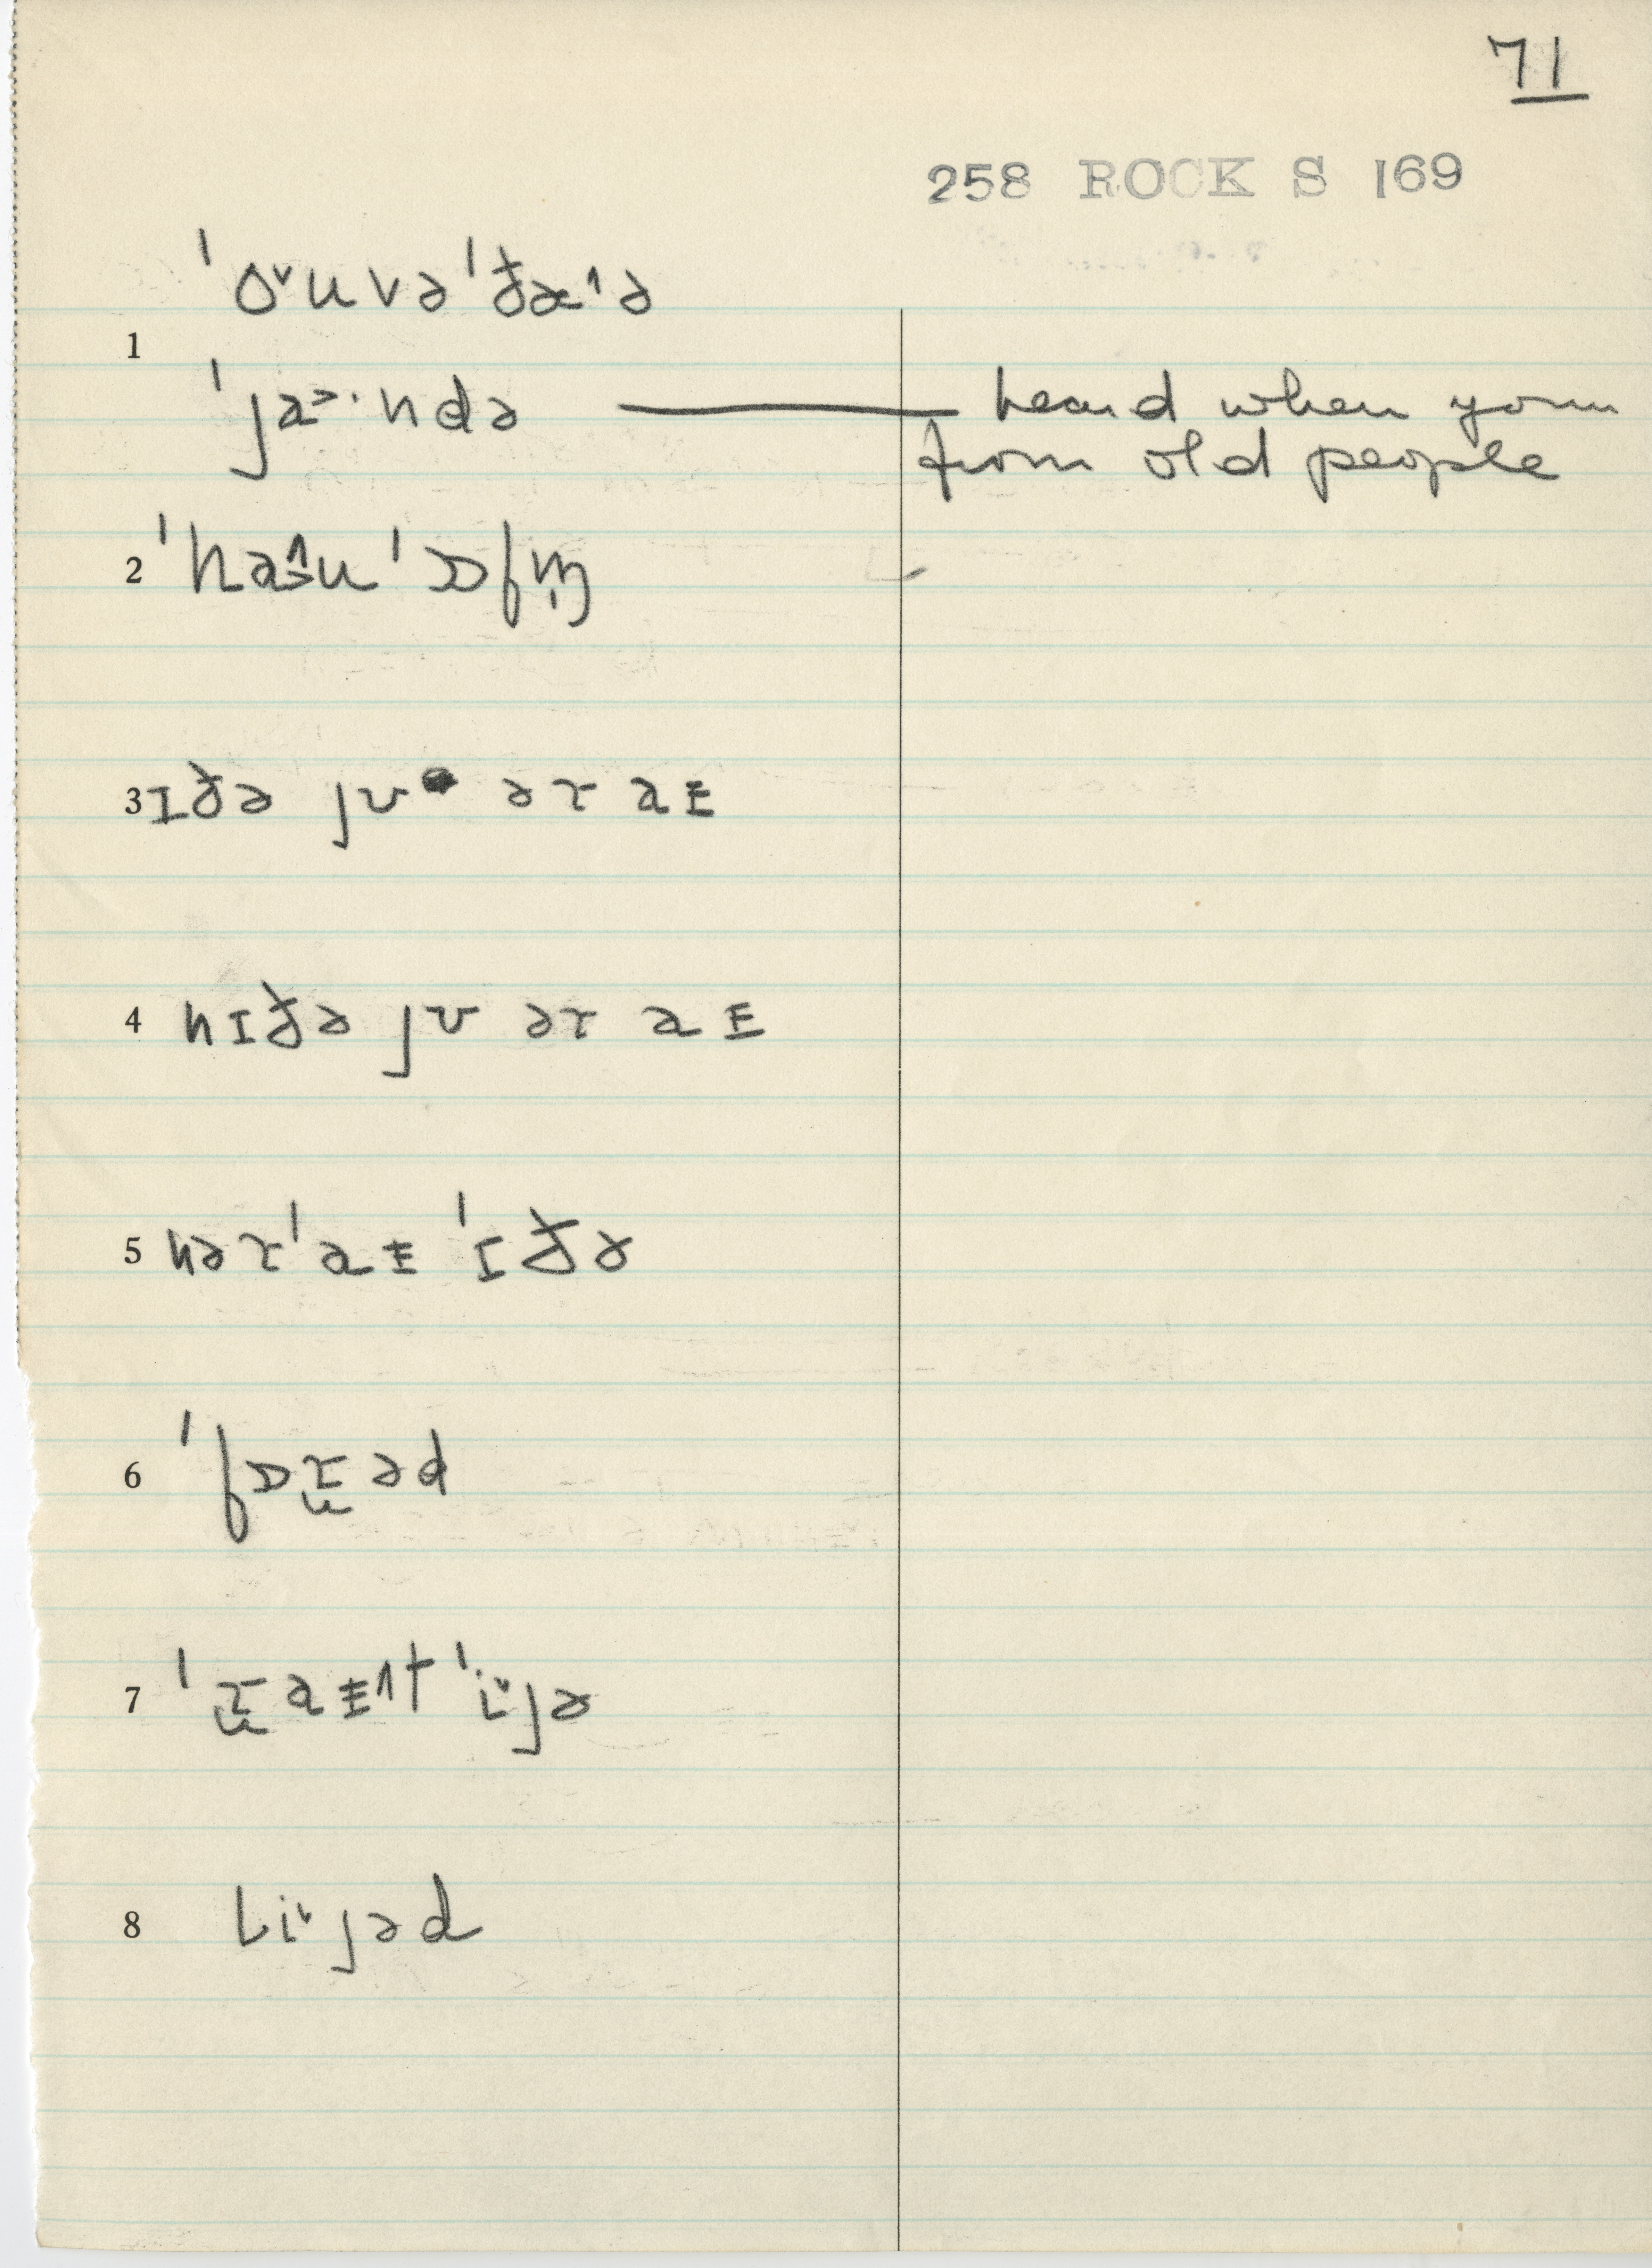 71
258 ROCK S 169
ˈo˅uvəˈðæ˄ə
1
ˈja˃·ndə — heard when youn
from old people
2 ˈhau ˈɒfm̩
3 ɪðə jʊ əɾ aɪ
4 nɪðə jʊ əɾ aɪ
5 nəɾ ˈaɪ ˈɪðə
6 ˈfɒɾəd
7 ˈɾaɪ˄t ˈi˅jə
8 li˅jəd